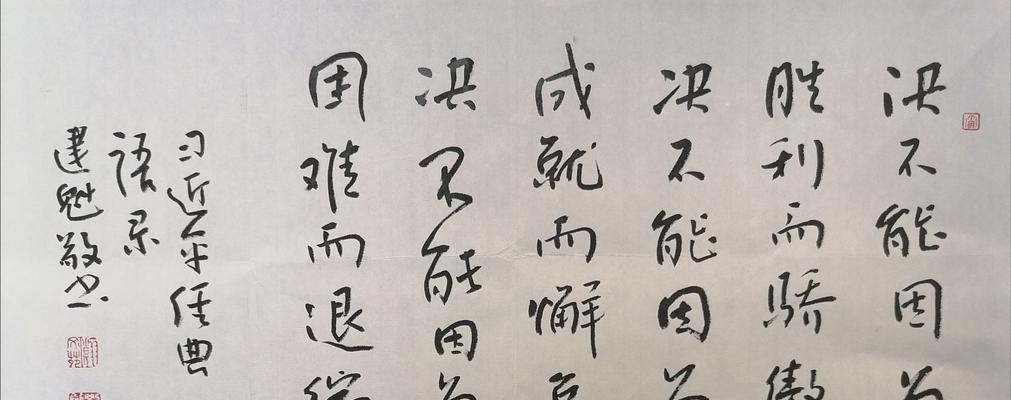 决不能因为
胜利而骄傲
决不能因为
成就而懈怠
决不能因为
困难而退缩
习近平经典
语录
建魁敬书